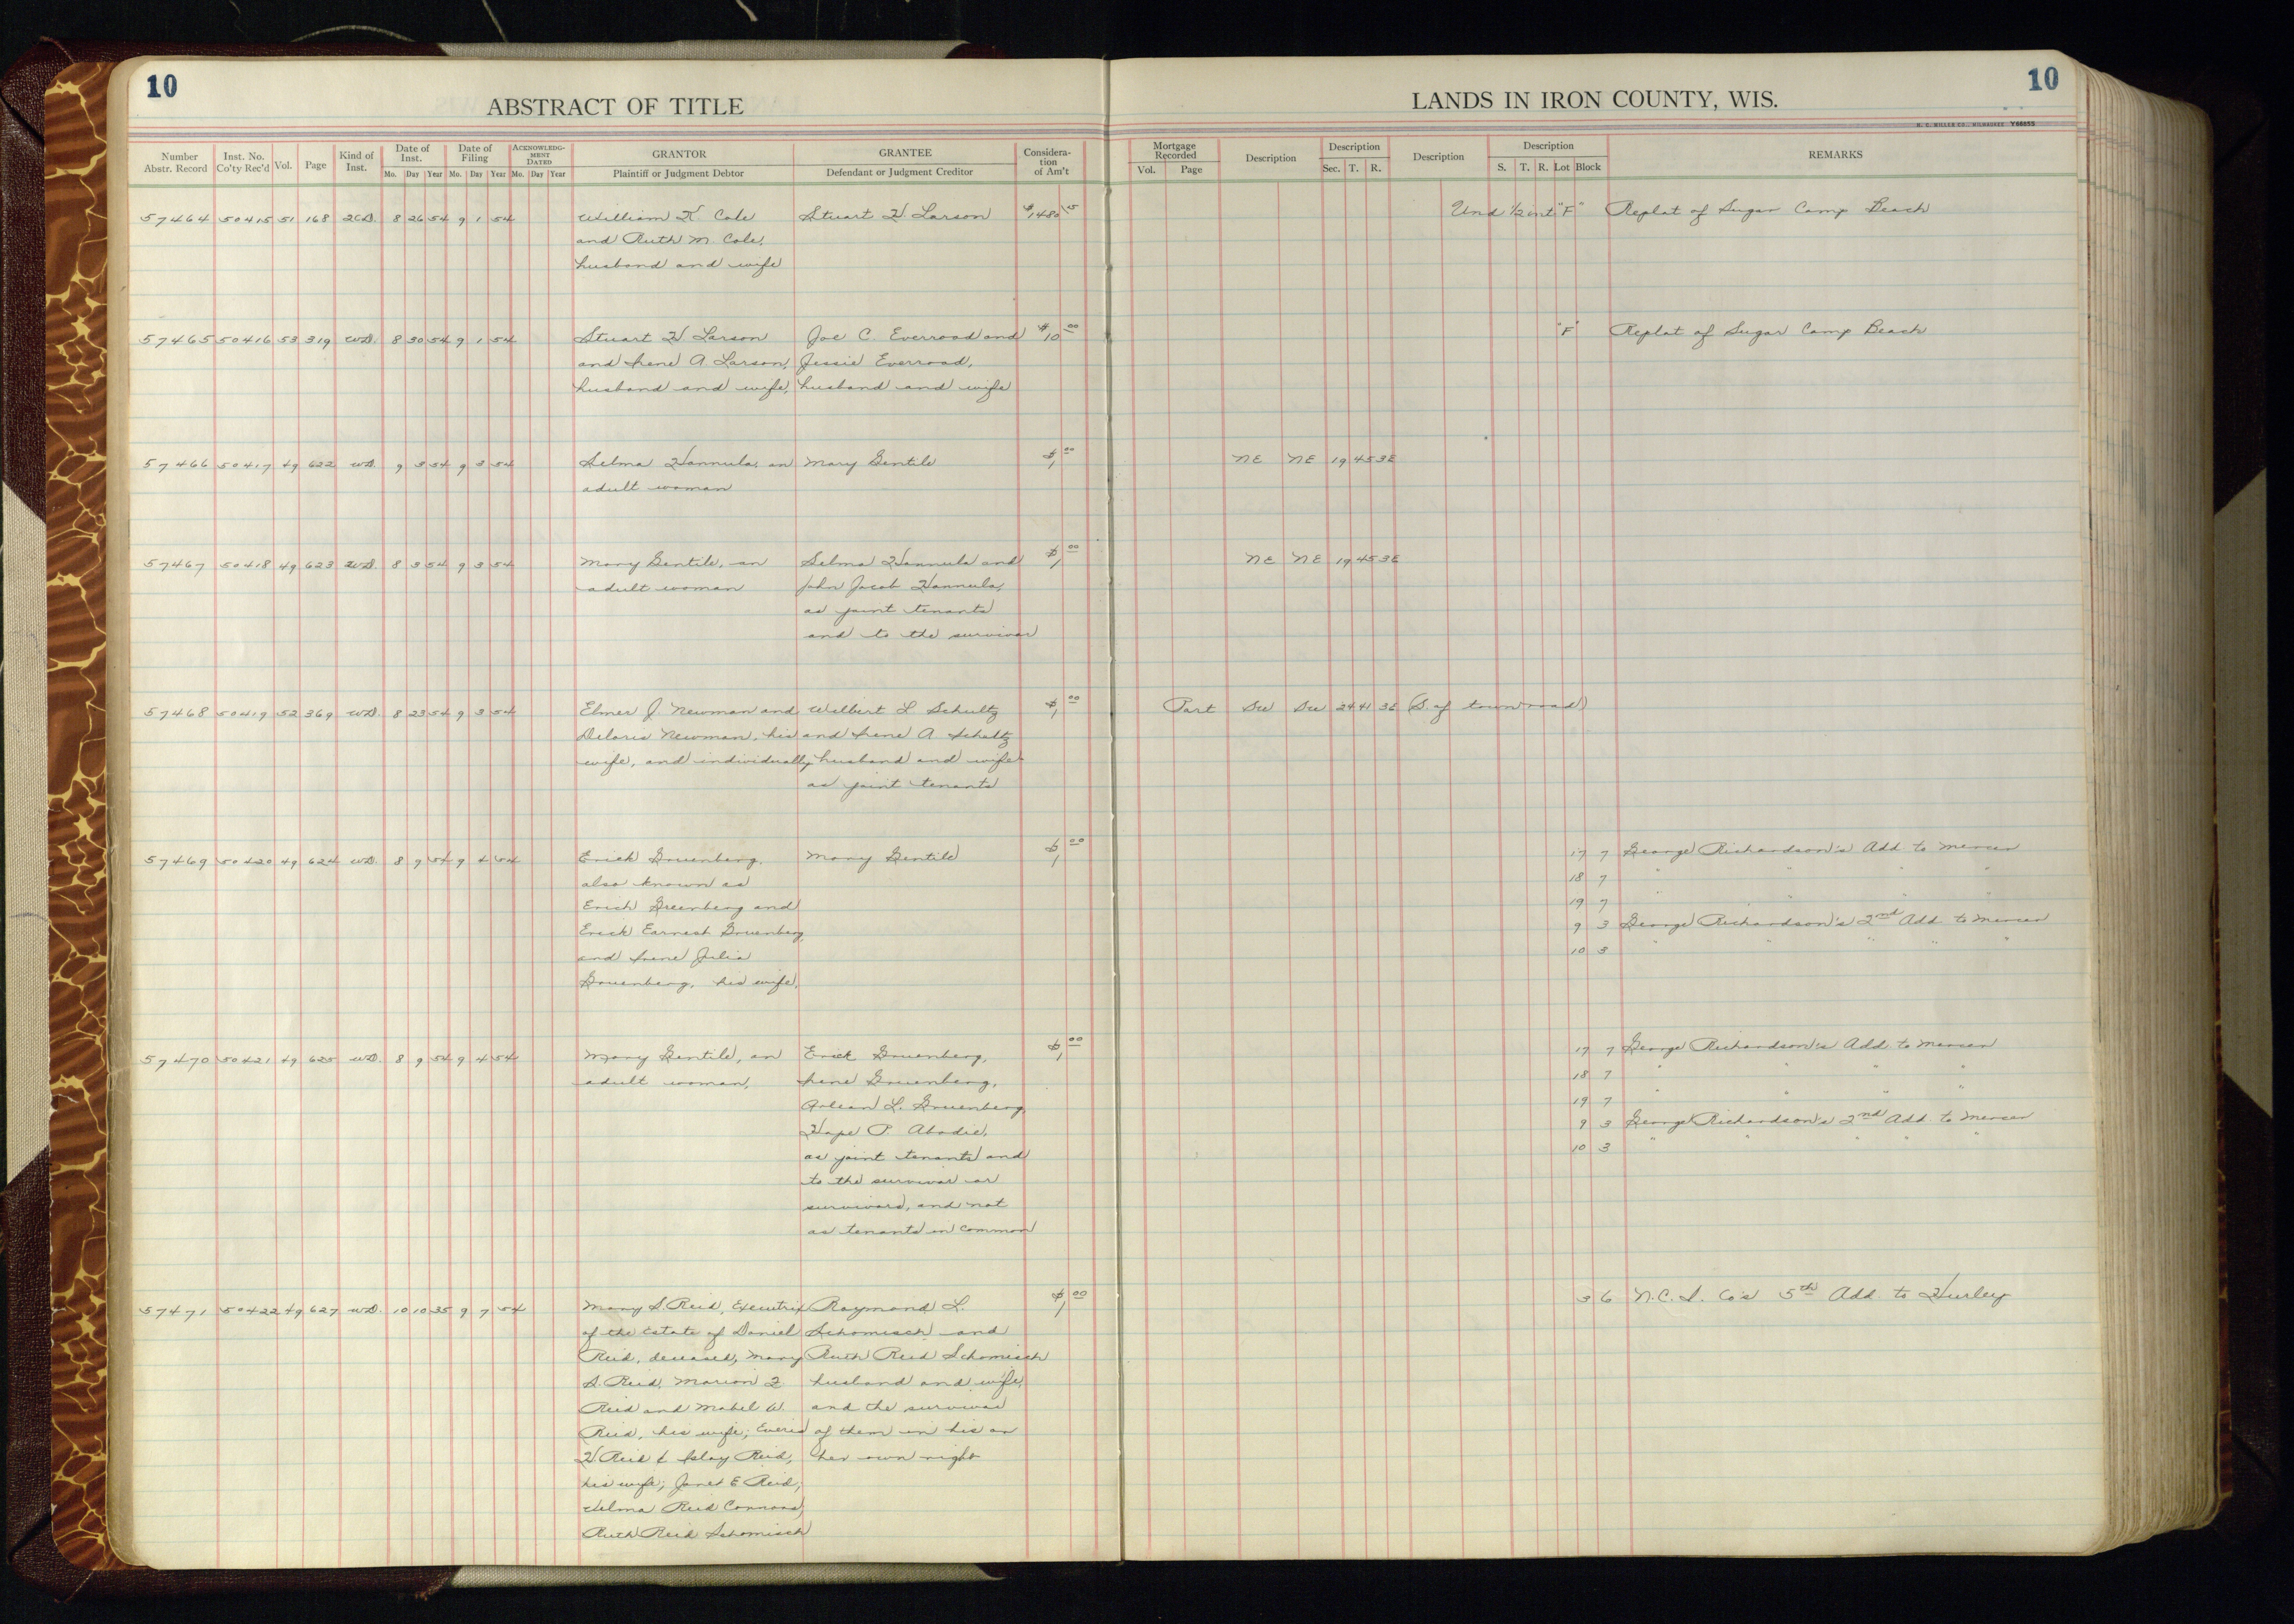 10
ABSTRACT OF TITLE
Number Abstr. Record
Inst. No. Co'ty Rec'd
Vol.
Page
Kind of Inst.
Date of Inst.
Mo. Day Year
Date of Filing
Mo. Day Year
ACKNOWLEDGMENT DATED
Mo. Day Year
GRANTOR
Plaintiff or Judgment Debtor
GRANTEE
Defendant or Judgment Creditor
Consideration of Am't
10
LANDS IN IRON COUNTY, WIS.
H. C. MILLER CO., MILWAUKEE
Mortgage Recorded
Vol. Page
Description
Description
Sec. T. R.
Description
Description
S. T. R. Lot Block
REMARKS
57464 50415 51 168 2CD. 8 26 54 9 1 54 William K. Cole Stuart H. Larson $1480 Und 1/2 int "F" Replat of Sugar Camp Beach
and Ruth M. Cole,
husband and wife
57465 50416 53 319 WD. 8 30 54 9 1 54 Stuart H Larson Joe C. Everroad and $10 00 "F" Replat of Sugar Camp Beach
and Irene A. Larson, Jessie Everroad,
husband and wife, husband and wife
57466 50417 49 622 WD. 9 3 54 9 3 54 Selma Hannula, an Mary Gentile $1 00 NE NE 19 45 3E
adult woman
57467 50418 49 623 WD. 8 3 54 9 3 54 Mary Gentile, an Selma Hannula and $1 00 NE NE 19 45 3E
adult woman John Jacob Hannula,
as joint tenants
and to the survivor
57468 50419 52 369 WD. 8 23 54 9 3 54 Elmer J. Newman and Wilbert L. Schultz $1 00 Part SW SW 24 41 3E (S. of town road)
Deloris Newman, his and Irene A Schultz
wife, and individually, husband and wife
as joint tenants
57469 50420 49 624 WD. 8 9 54 9 4 54 Erick Gruenberg, Mary Gentile $1 00 17 7 George Richardson's Add. to Mercer
also known as 18 7 " " " "
Erich Greenberg and 19 7 " " " "
Erick Earnest Gruenberg 9 3 George Richardson's 2nd Add. to Mercer
and Irene Julia 10 3 " " " " "
Gruenberg, his wife,
57470 50421 49 625 WD. 8 9 54 9 4 54 Mary Gentile, an Erick Gruenberg, $1 00 17 7 George Richardson's Add. to Mercer
adult woman, Irene Gruenberg, 18 7 " " " "
Arlean L. Gruenberg, 19 7 " " " "
Hope P. Abadie, 9 3 George Richardson's 2nd Add. to Mercer
as joint tenants and 10 3 " " " " "
to the survivor or
survivors, and not
as tenants in common
57471 50422 49 627 WD. 10 10 35 9 7 54 Mary S. Reid, Executrix Raymond L. $1 00 3 6 N.C.I. Co's 5th Add. to Hurley
of the Estate of Daniel Schomisch and
Reid, deceased, Mary Ruth Reid Schomisch
S. Reid, Marion husband and wife,
Reid and Mabel W. and the survivor
Reid, his wife; of them in his or
H Reid & Islay Reid, her own right
his wife; Janet E Reid,
Velma Reid Connors,
Ruth Reid Schomisch